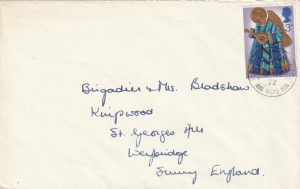 3p
72
405
Brigadier & Mrs. Bradshaw
Kingswood
St. Georges Hill
Weybridge
Surrey England.